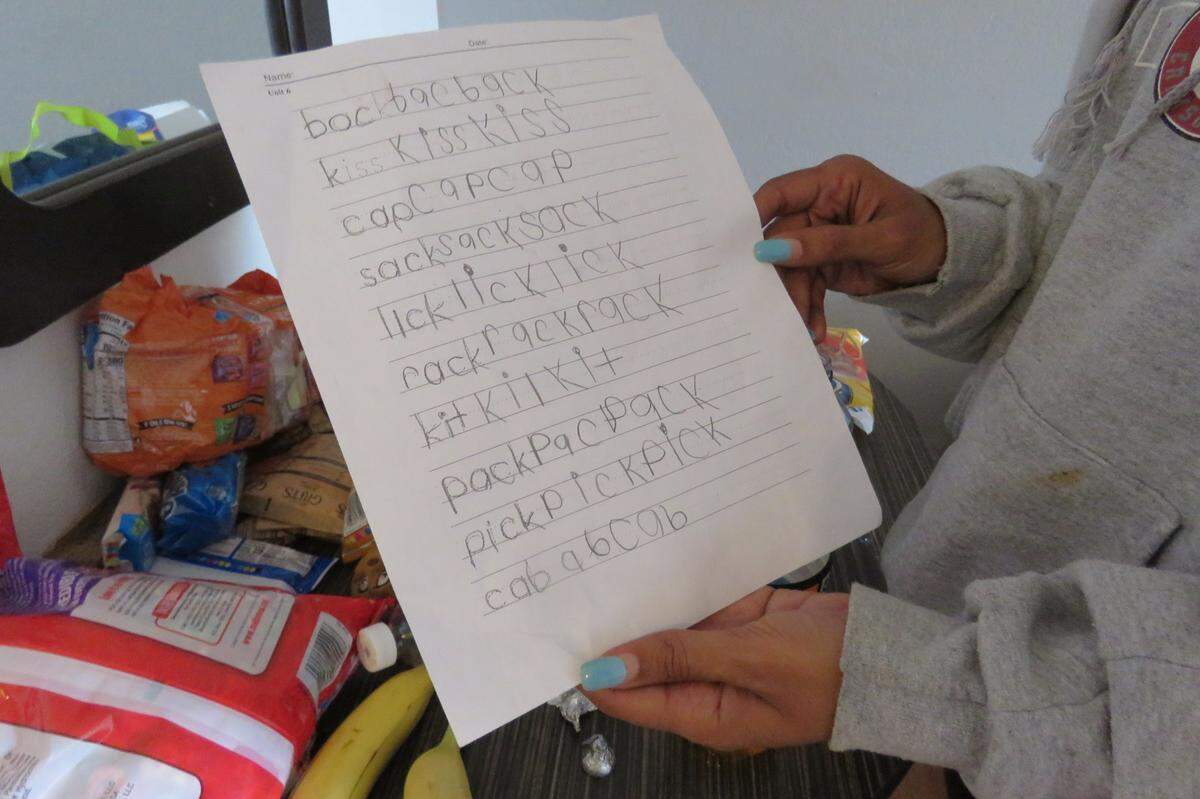 Name
Date
Unit 6
back bac back
kiss kiss kiss
cap cap cap
sack sack sack
lick lick lick
rack rack rack
kit kil kit
pack pac pack
pick pick pick
cab ab cab
GRITS